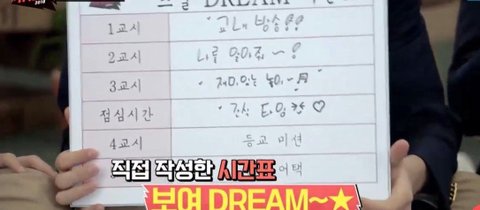 DREAM
1교시 "교내 방송!!"
2교시 나를 알아줘~!
3교시 "재미있는 놀이~♬
점심시간 "간식 타임 ♡
4교시 등교 미션
직접 작성한 시간표 어택
보여 DREAM~★